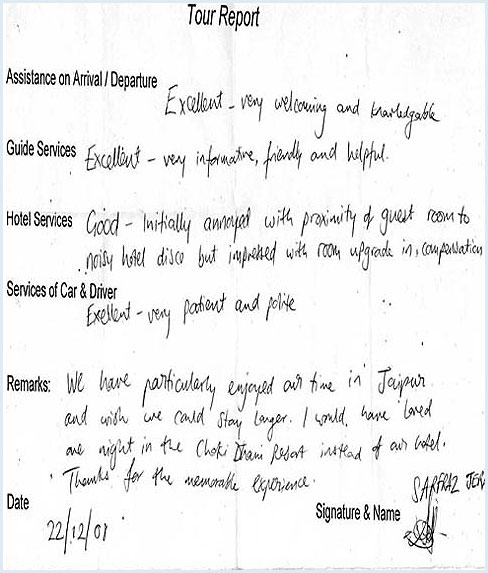 Tour Report
Assistance on Arrival / Departure
Excellent - very welcoming and knowledgable
Guide Services Excellent - very informative, friendly and helpful.
Hotel Services Good - Initially annoyed with proximity of guest room to
noisy hotel disco but impressed with room upgrade in compensation
Services of Car & Driver
Exellent - very patient and polite
Remarks: We have particularly enjoyed our time in Jaipur
and wish we could stay longer. I would have loved
one night in the Choki Dhani Resort instead of our hotel.
Thanks for the memorable experience.
SARFRAZ
Date
22/12/01
Signature & Name